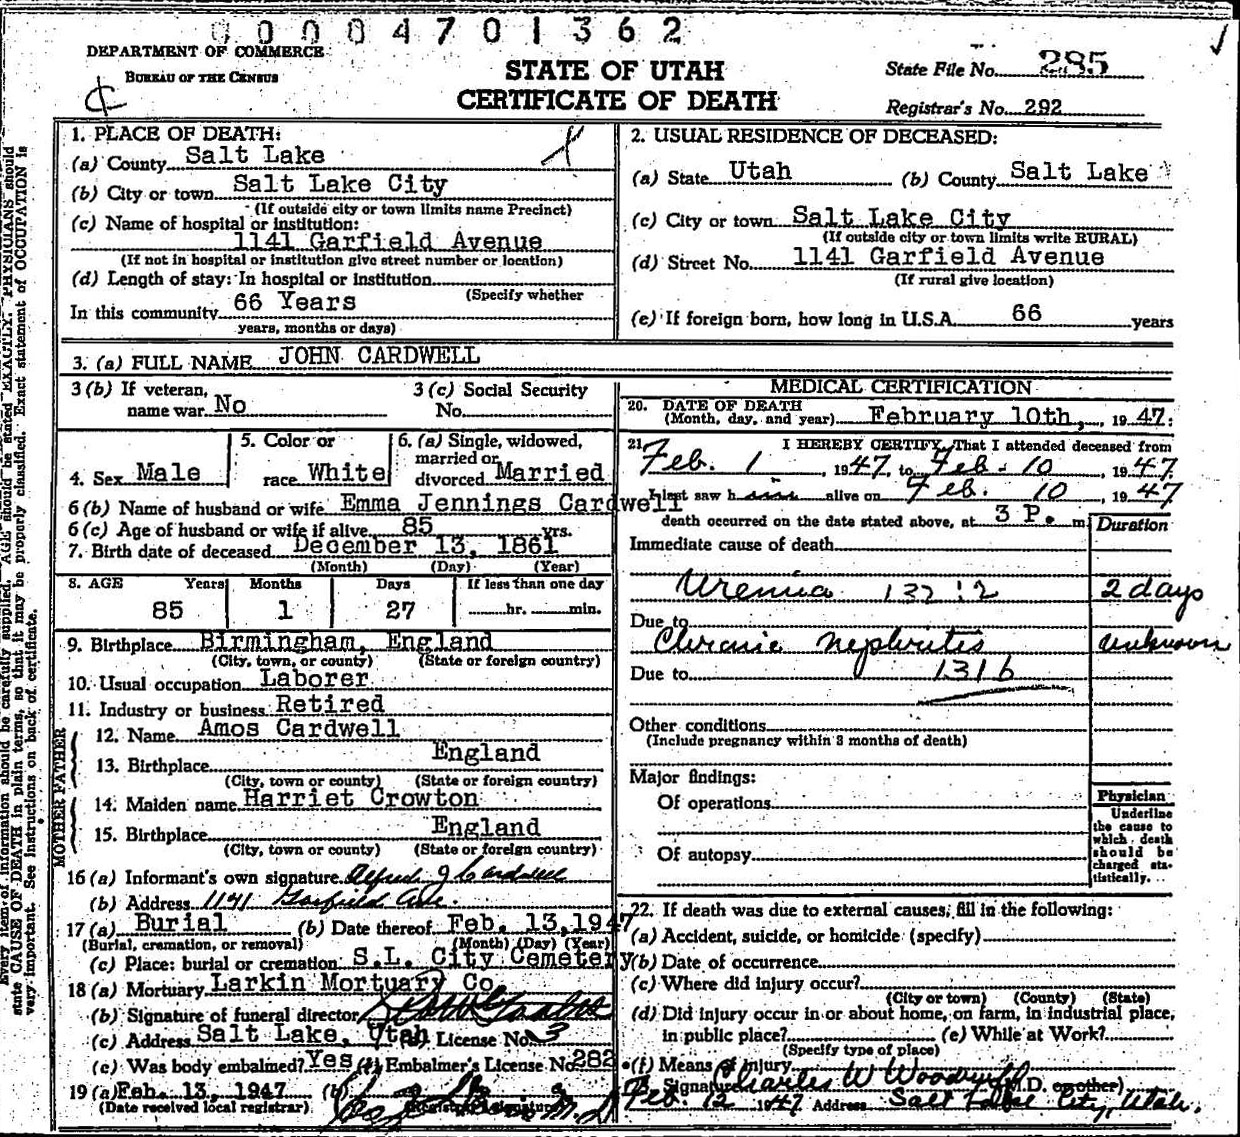 00004701362
DEPARTMENT OF COMMERCE
BUREAU OF THE CENSUS
STATE OF UTAH
CERTIFICATE OF DEATH
State File No. 285
Registrar's No. 292
1. PLACE OF DEATH:
(a) County Salt Lake
(b) City or town Salt Lake City
(If outside city or town limits name Precinct)
(c) Name of hospital or institution:
1141 Garfield Avenue
(If not in hospital or institution give street number or location)
(d) Length of stay: In hospital or institution
(Specify whether
In this community 66 Years
years, months or days)
2. USUAL RESIDENCE OF DECEASED:
(a) State Utah (b) County Salt Lake
(c) City or town Salt Lake City
(If outside city or town limits write RURAL)
(d) Street No. 1141 Garfield Avenue
(If rural give location)
(e) If foreign born, how long in U.S.A. 66 years
3. (a) FULL NAME JOHN CARDWELL
3 (b) If veteran, name war No
3 (c) Social Security No.
4. Sex Male
5. Color or race White
6. (a) Single, widowed, married or divorced Married
6 (b) Name of husband or wife Emma Jennings Cardwell
6 (c) Age of husband or wife if alive 85 yrs.
7. Birth date of deceased December 13, 1861
(Month) (Day) (Year)
8. AGE Years Months Days If less than one day
85 1 27 hr. min.
9. Birthplace Birmingham, England
(City, town, or county) (State or foreign country)
10. Usual occupation Laborer
11. Industry or business Retired
FATHER
12. Name Amos Cardwell
13. Birthplace England
(City, town or county) (State or foreign country)
MOTHER
14. Maiden name Harriet Crowton
15. Birthplace England
(City, town or county) (State or foreign country)
16 (a) Informant's own signature Alfred J Cardwell
(b) Address 1141 Garfield Ave.
17 (a) Burial (b) Date thereof Feb. 13, 1947
(Burial, cremation, or removal) (Month) (Day) (Year)
(c) Place: burial or cremation S.L. City Cemetery
18 (a) Mortuary Larkin Mortuary Co
(b) Signature of funeral director
(c) Address Salt Lake, Utah (d) License No. 3
(e) Was body embalmed? Yes (f) Embalmer's License No. 282
19 (a) Feb. 13, 1947 (b)
(Date received local registrar) (Registrar's signature)
MEDICAL CERTIFICATION
20. DATE OF DEATH
(Month, day, and year) February 10th, 1947.
21. I HEREBY CERTIFY, That I attended deceased from
Feb. 1, 1947, to Feb. 10, 1947
I last saw him alive on Feb. 10, 1947
death occurred on the date stated above, at 3 P. m.
Duration
Immediate cause of death
Uremia 2 days
Due to
Chronic nephritis unknown
Due to 131b
Other conditions
(Include pregnancy within 3 months of death)
Major findings:
Of operations
Of autopsy
Physician
Underline the cause to which death should be charged statistically.
22. If death was due to external causes, fill in the following:
(a) Accident, suicide, or homicide (specify)
(b) Date of occurrence
(c) Where did injury occur?
(City or town) (County) (State)
(d) Did injury occur in or about home, on farm, in industrial place, in public place? (e) While at Work?
(Specify type of place)
(f) Means of Injury
23. Signature Charles W Woodruff (M.D. or other)
Feb. 12 1947 Address Salt Lake City, Utah.
Every item of information should be carefully supplied. AGE should be stated EXACTLY. PHYSICIANS should
state CAUSE OF DEATH in plain terms, so that it may be properly classified. Exact statement of OCCUPATION is
very important. See instructions on back of certificate.